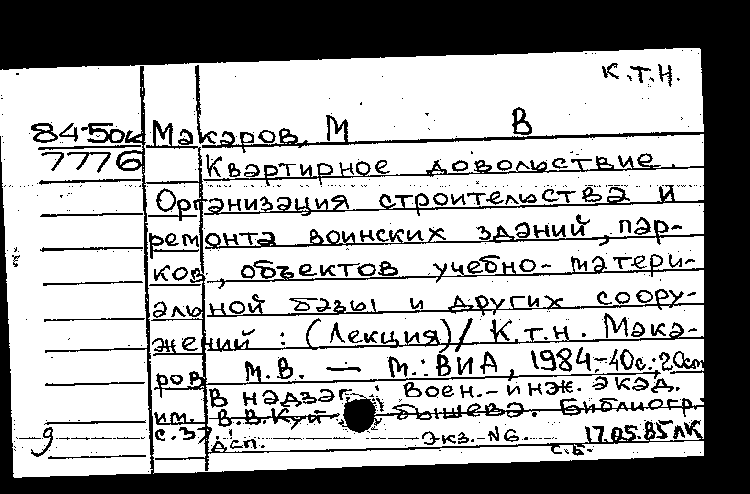 К.Т.Н.
84-50к Макаров, М В
7776 Квартирное довольствие.
Организация строительства и
ремонта воинских зданий, пар-
ков, объектов учебно-матери-
альной базы и других соору-
жений : (Лекция)/ К.т.н. Мака-
ров М.В. — М.: ВИА, 1984.-40с.; 20см
В надзаг.: Воен.-инж. акад.
им. В.В.Куйбышева. Библиогр.:
с.37
9 Дсп. Экз. №6. 17.05.85 ЛК
С.Б.